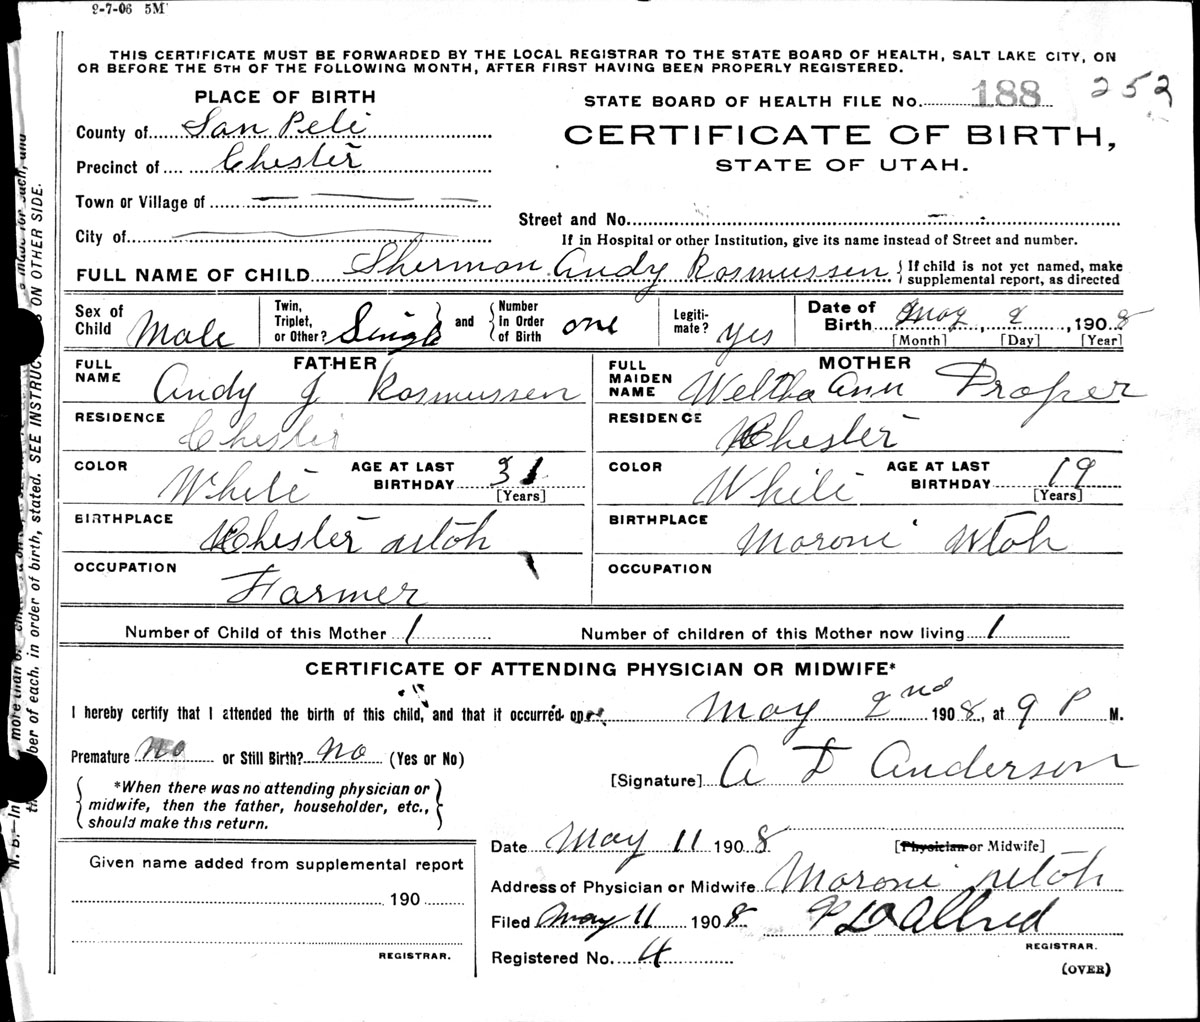 2-7-06 5M
THIS CERTIFICATE MUST BE FORWARDED BY THE LOCAL REGISTRAR TO THE STATE BOARD OF HEALTH, SALT LAKE CITY, ON
OR BEFORE THE 5TH OF THE FOLLOWING MONTH, AFTER FIRST HAVING BEEN PROPERLY REGISTERED.
PLACE OF BIRTH
STATE BOARD OF HEALTH FILE No. 188 252
County of San Pete
CERTIFICATE OF BIRTH,
Precinct of Chester
STATE OF UTAH.
Town or Village of
Street and No.
City of
If in Hospital or other Institution, give its name instead of Street and number.
FULL NAME OF CHILD Sherman Andy Rasmussen { If child is not yet named, make
supplemental report, as directed
Sex of Child Male Twin, Triplet, or Other? Single and Number In Order of Birth one Legiti- mate? yes Date of Birth May, 2, 1908
[Month] [Day] [Year]
FATHER MOTHER
FULL NAME Andy J Rasmussen FULL MAIDEN NAME Weltha Ann Draper
RESIDENCE Chester RESIDENCE Chester
COLOR White AGE AT LAST BIRTHDAY 31 [Years] COLOR White AGE AT LAST BIRTHDAY 19 [Years]
BIRTHPLACE Chester Utah BIRTHPLACE Moroni Utah
OCCUPATION Farmer OCCUPATION
Number of Child of this Mother 1 Number of children of this Mother now living 1
CERTIFICATE OF ATTENDING PHYSICIAN OR MIDWIFE*
I hereby certify that I attended the birth of this child, and that it occurred on May 2nd 1908, at 9 P M.
Premature no or Still Birth? no (Yes or No)
[Signature] A D Anderson
*When there was no attending physician or
midwife, then the father, householder, etc.,
should make this return.
Date May 11 1908 [Physician or Midwife]
Given name added from supplemental report
Address of Physician or Midwife Moroni Utah
190
Filed May 11 1908 P D Allred
REGISTRAR.
REGISTRAR.
Registered No. 4
(OVER)
ber of each, in order of birth, stated. SEE INSTRUC ON OTHER SIDE.